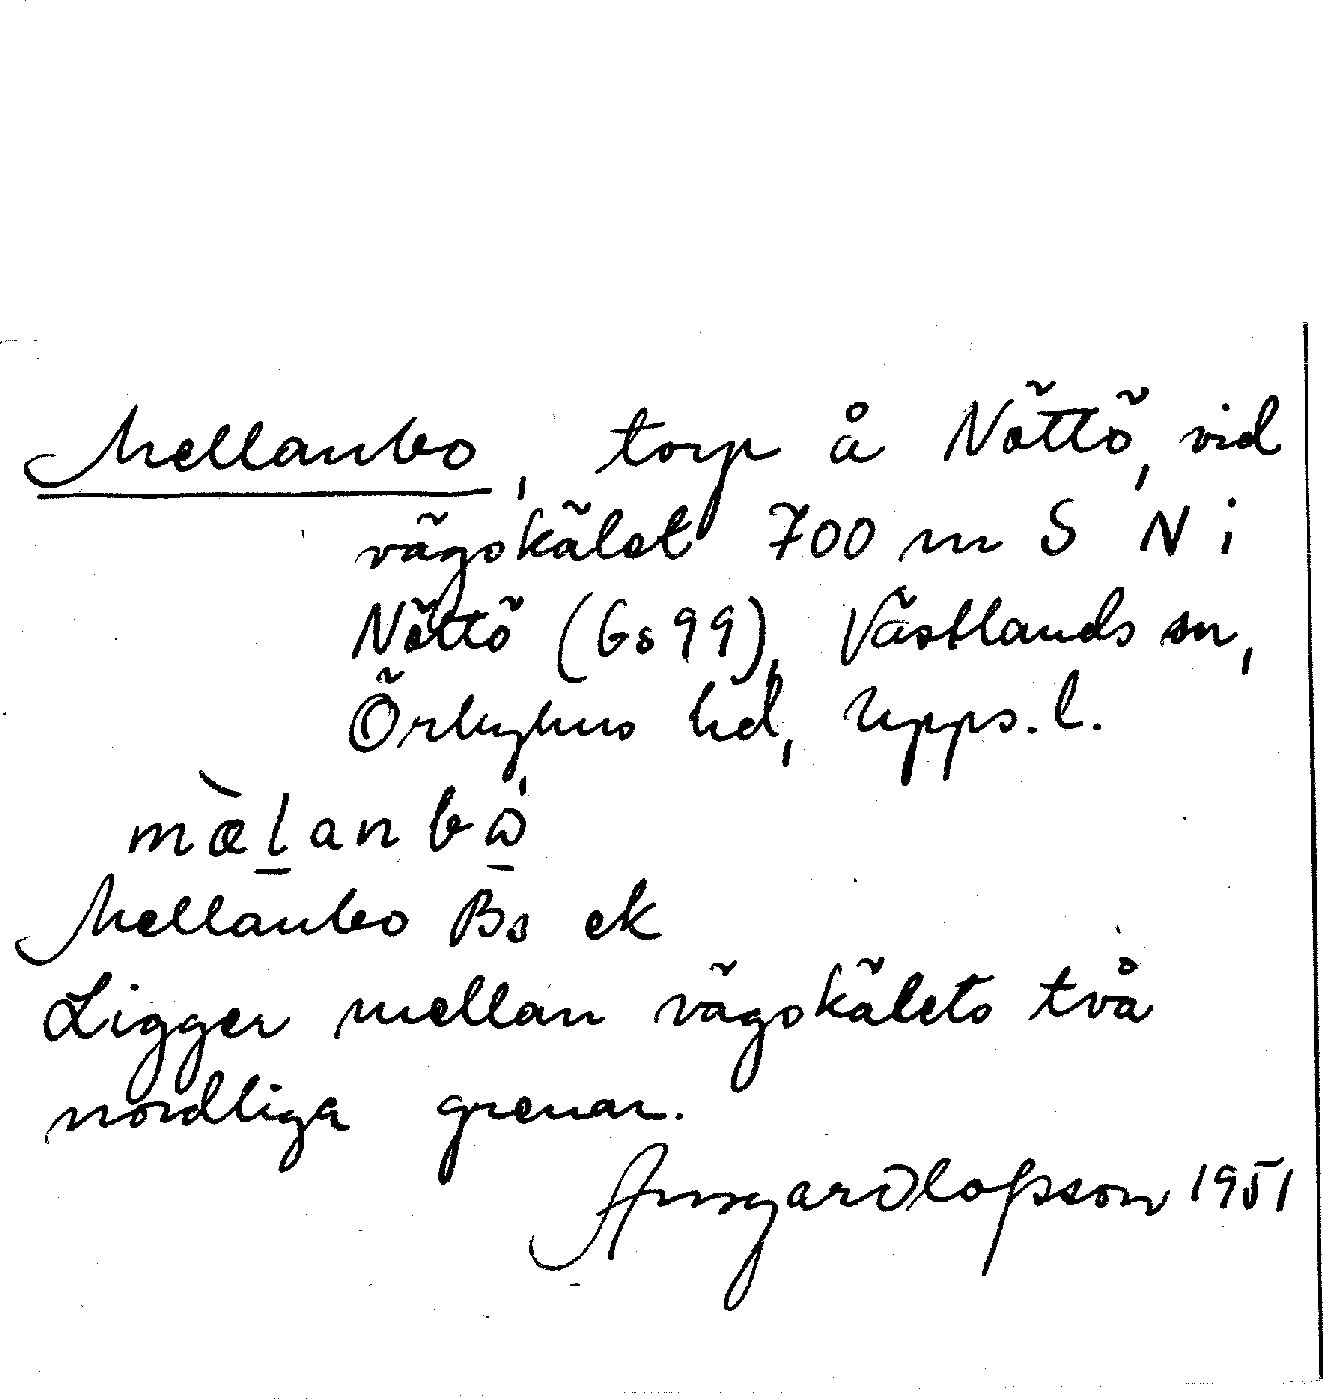 Mellanbo, torp å Nöttö, vid
vägskälet 700 m S N i
Nöttö (Gs 99), Västlands sn,
Örbyhus hd, Upps. l.
mæ̀lanbὼ
Mellanbo Bs ek
Ligger mellan vägskälets två
nordliga grenar.
Ansgar Olofsson 1951